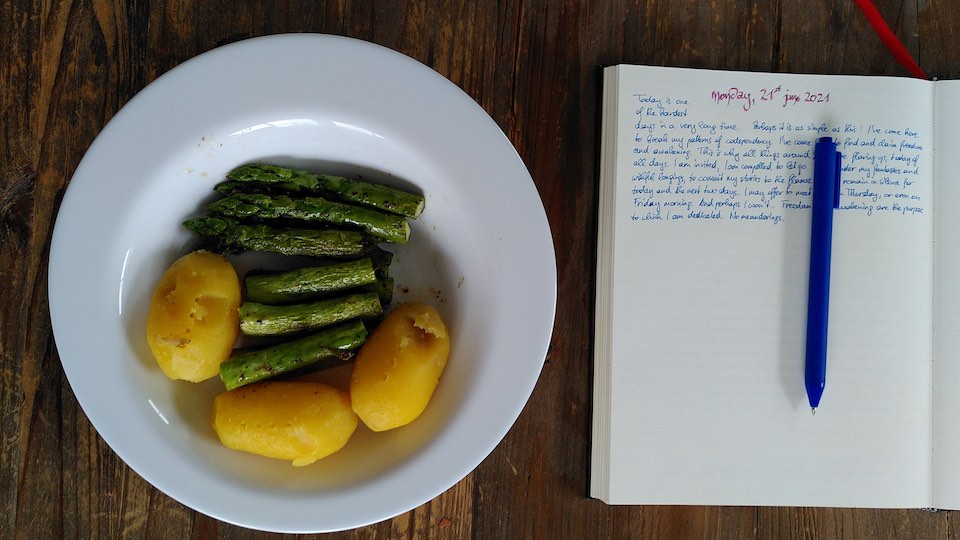 Monday, 21st june 2021
Today is one
of the hardest
days in a very long time. Perhaps it is as simple as this: I've come here
to break my patterns of codependency. I've come find and claim freedom
and awakening. This is why all things around flaring up, today of
all days. I am invited, I am compelled to let go my fantasies and
wishful longings, to commit my stories to the flames. remain in silence for
today and the next two days. I may offer to meet Thursday, or even on
Friday morning. And perhaps I won't. Freedom awakening are the purpose
to which I am dedicated. No meanderings.